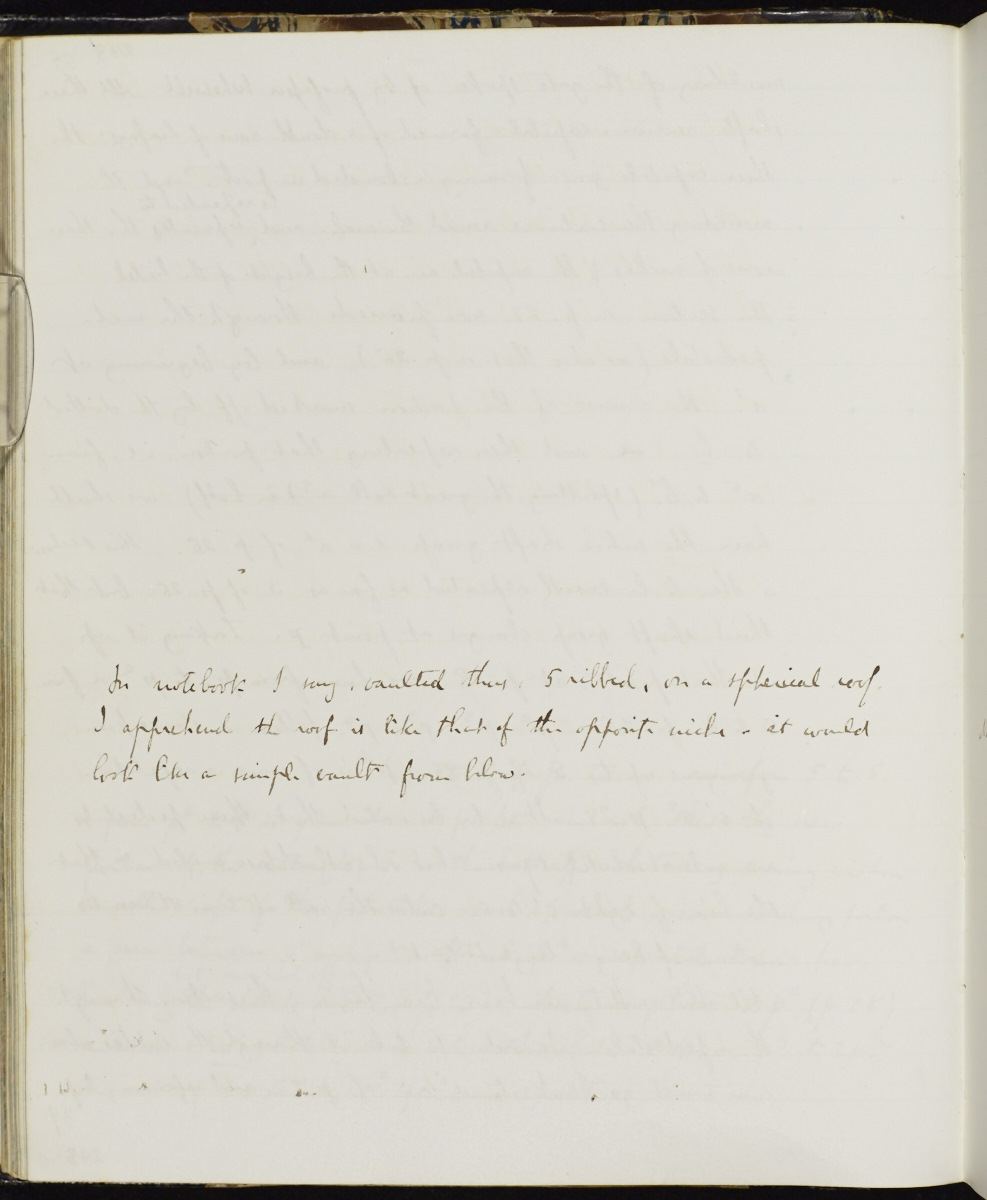 In notebook I say, vaulted thus. 5 ribbed, on a spherical roof.
I apprehend the roof is like that of the opposite niche - it would
look like a simple vault from below.